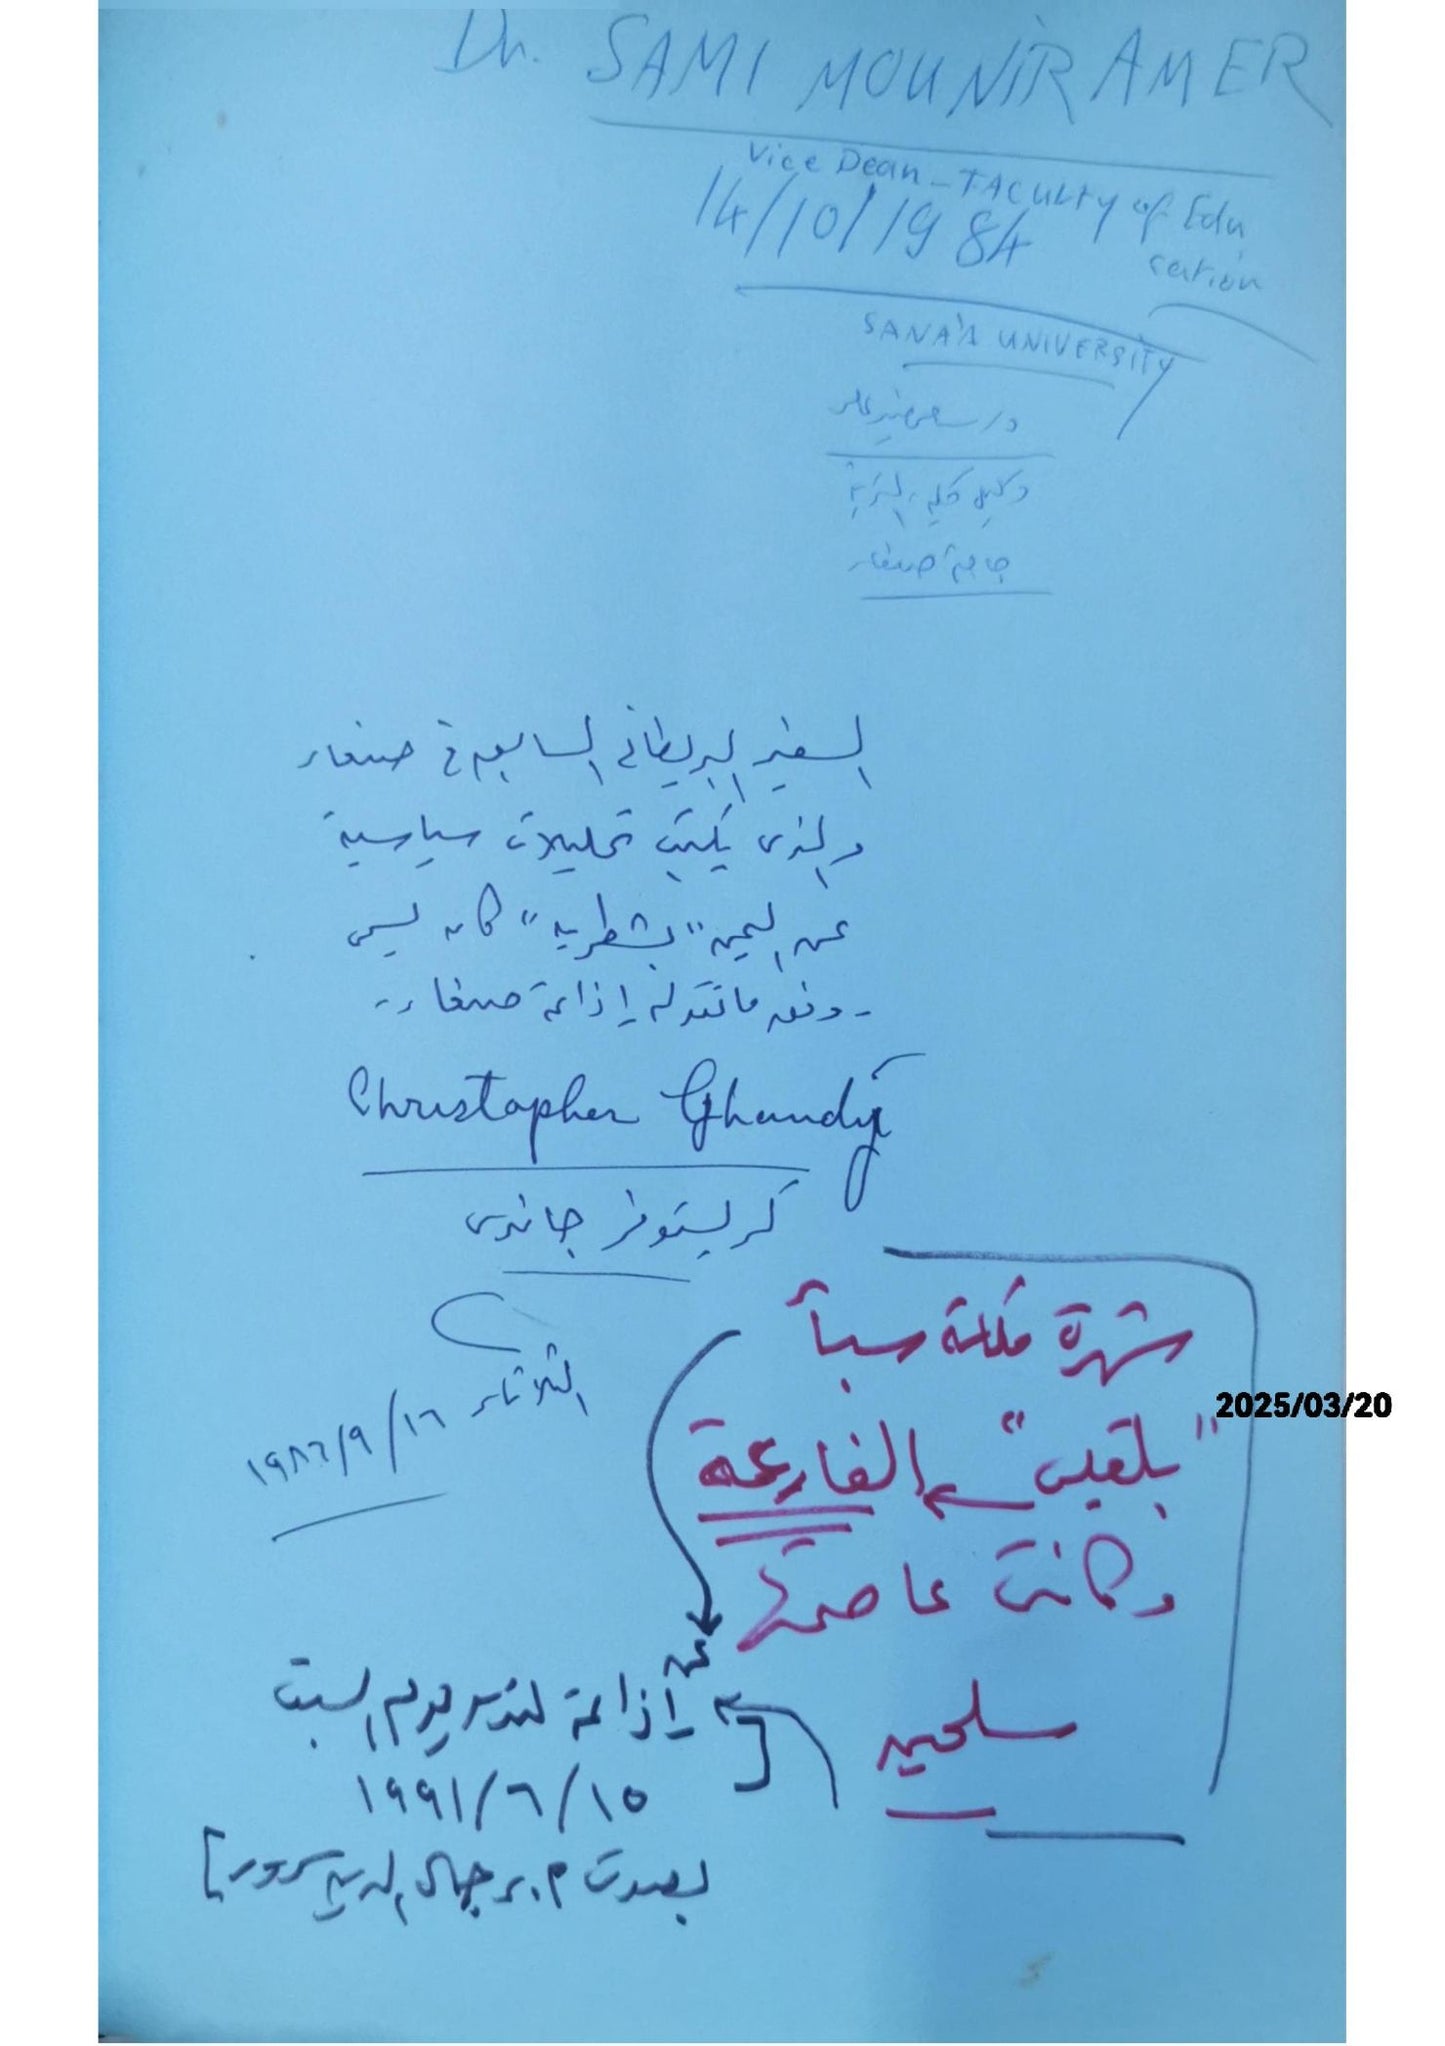 Dr. SAMI MOUNIR AMER
Vice Dean - FACULTY of Edu
cation
14/10/1984
SANA'A UNIVERSITY
د/ سامى منير عامر
وكيل كلية التربية
جامعة صنعاء
السفير البريطانى السابق فى صنعاء
والذى يكتب تحليلات سياسية
عن اليمن "بشطريه" كان يسمى
- وفق ما تقوله إذاعة صنعاء -
Christopher Ghandy
كريستوفر جاندى
الثلاثاء ١٦/٩/١٩٨٦
شهرة ملكة سبأ
"بلقيس" الفارعة
وكانت عاصمتها
سلحين
عن
إذاعة لندن يوم السبت
١٥/٦/١٩٩١
بصوت جمال الدين سرور]
2025/03/20